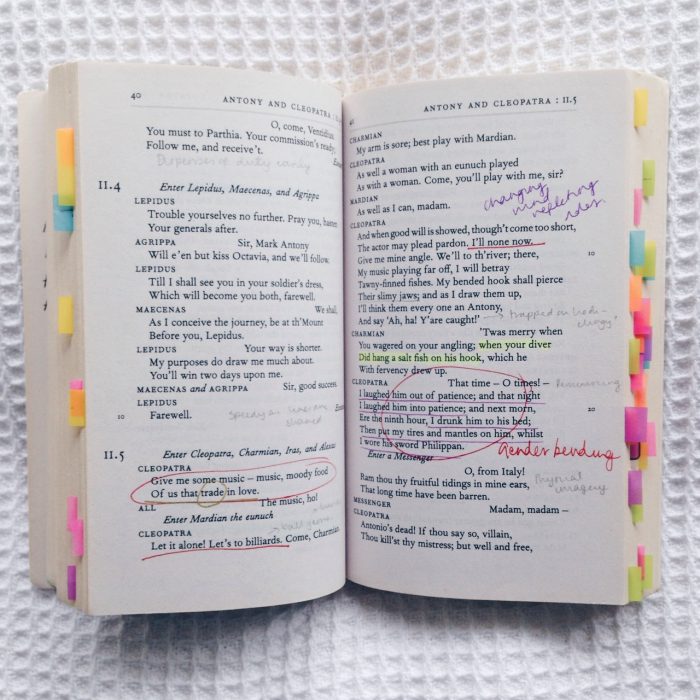 40
ANTONY AND CLEOPATRA : II.5
O, come, Ventidius
You must to Parthia. Your commission's ready;
Follow me, and receive't.
II.4
Enter Lepidus, Maecenas, and Agrippa
LEPIDUS
Trouble yourselves no further. Pray you, hasten
Your generals after.
AGRIPPA Sir, Mark Antony
Will e'en but kiss Octavia, and we'll follow.
LEPIDUS
Till I shall see you in your soldier's dress,
Which will become you both, farewell.
MAECENAS We shall,
As I conceive the journey, be at th'Mount
Before you, Lepidus.
LEPIDUS Your way is shorter.
My purposes do draw me much about.
You'll win two days upon me.
MAECENAS and AGRIPPA Sir, good success.
LEPIDUS
10 Farewell.
II.5 Enter Cleopatra, Charmian, Iras, and Alexas
CLEOPATRA
Give me some music – music, moody food
Of us that trade in love.
ALL The music, ho!
Enter Mardian the eunuch
CLEOPATRA
Let it alone! Let's to billiards. Come, Charmian.
ANTONY AND CLEOPATRA : II.5
CHARMIAN
My arm is sore; best play with Mardian.
CLEOPATRA
As well a woman with an eunuch played
As with a woman. Come, you'll play with me, sir?
MARDIAN
As well as I can, madam.
changing
mind
CLEOPATRA
And when good will is showed, though't come too short,
The actor may plead pardon. I'll none now.
Give me mine angle. We'll to th'river; there, 10
My music playing far off, I will betray
Tawny-finned fishes. My bended hook shall pierce
Their slimy jaws; and as I draw them up,
I'll think them every one an Antony,
And say 'Ah, ha! Y'are caught!'
CHARMIAN 'Twas merry when
You wagered on your angling; when your diver
Did hang a salt fish on his hook, which he
With fervency drew up.
CLEOPATRA That time – O times! –
I laughed him out of patience; and that night
I laughed him into patience; and next morn, 20
Ere the ninth hour, I drunk him to his bed;
Then put my tires and mantles on him, whilst
I wore his sword Philippan.
Gender bending
Enter a Messenger
O, from Italy!
Ram thou thy fruitful tidings in mine ears,
That long time have been barren.
imagery
MESSENGER Madam, madam –
CLEOPATRA
Antonio's dead! If thou say so, villain,
Thou kill'st thy mistress; but well and free,